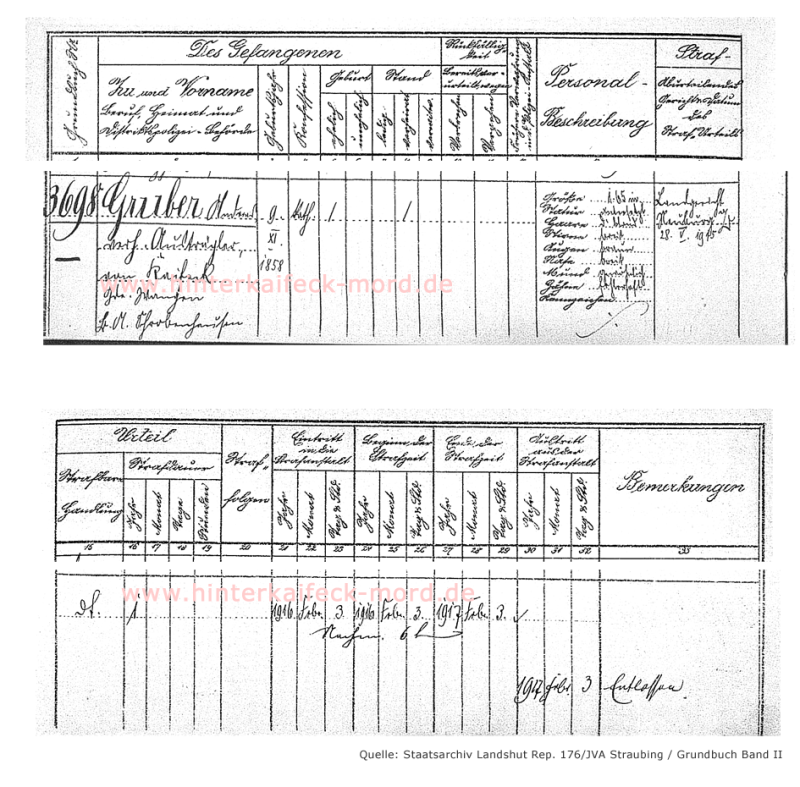 Grundbuch Nr.
Des Gefangenen
Zu und Vorname
Beruf, Heimat und
Distriktspolizei-Behörde
Geburtsjahr
Konfession
Geburt
ehelich
unehelich
Stand
ledig
verheiratet
verwitw.
Rückfällig-
keit
Bereits ver-
urteilt wegen
Verbrechen
Vergehen
Personal-
Beschreibung
Straf-
Aburteilendes
Gericht u. Datum
des
Straf-Urteils
3698
Gruber, Andreas
verh. Austrägler,
von Kaifeck
Gde. Wangen
B.A. Schrobenhausen
9.
XI.
1858
kath.
1
1
Größe 1.65 m
Statur
Haare
Stirne breit
Augen braun
Nase breit
Mund gewöhnlich
Zähne
Kennzeichen
Landgericht
Neuburg a/D
28. V. 1915
www.hinterkaifeck-mord.de
Urteil
Strafbare
Handlung
Strafdauer
Jahr
Monat
Tage
Stunden
Straf-
folgen
Eintritt
in die
Strafanstalt
Jahr
Monat
Tag u. Std.
Beginn der
Strafzeit
Jahr
Monat
Tag u. Std.
Ende der
Strafzeit
Jahr
Monat
Tag u. Std.
Austritt
aus der
Strafanstalt
Jahr
Monat
Tag u. Std.
Bemerkungen
15 16 17 18 19 20 21 22 23 24 25 26 27 28 29 30 31 32 33
www.hinterkaifeck-mord.de
1 1916 Febr. 3. 1916 Febr. 3. 1917 Febr. 3.
Nachm. 6 h
1917 Febr. 3 Entlassen.
Quelle: Staatsarchiv Landshut Rep. 176/JVA Straubing / Grundbuch Band II